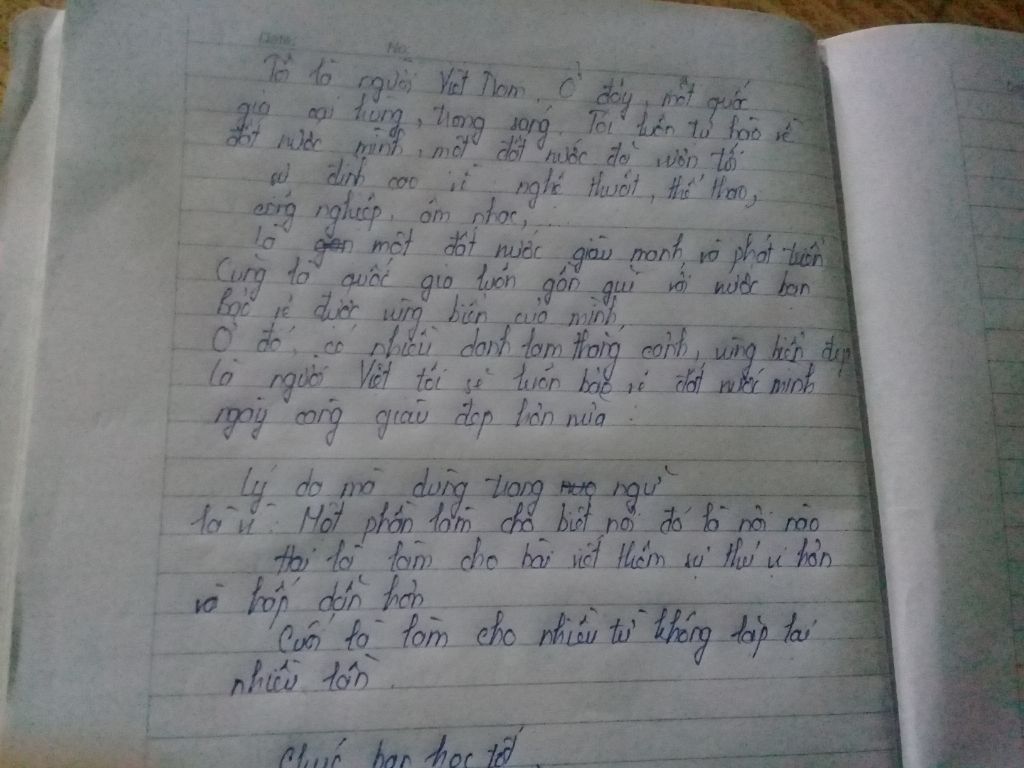 Date: No.
Tôi là người Việt Nam. Ở đây, một quốc
gia oai hùng, trong sáng. Tôi luôn tự hào về
đất nước mình, một đất nước đã vươn tới
sự đỉnh cao về nghệ thuật, thể thao,
công nghiệp, âm nhạc,...
Là một đất nước giàu mạnh và phát triển
Cũng là quốc gia luôn gần gũi với nước bạn
Bảo vệ được vùng biển của mình
Ở đó, có nhiều danh lam thắng cảnh, vùng biển đẹp
Là người Việt tôi sẽ luôn bảo vệ đất nước mình
ngày càng giàu đẹp hơn nữa.
Lý do mà dùng trạng ngữ
là vì: Một phần làm cho biết nơi đó là nơi nào
Hai là làm cho bài viết thêm sự thú vị hơn
và hấp dẫn hơn
Cuối là làm cho nhiều từ không lặp lại
nhiều lần.
Chúc bạn học tốt.